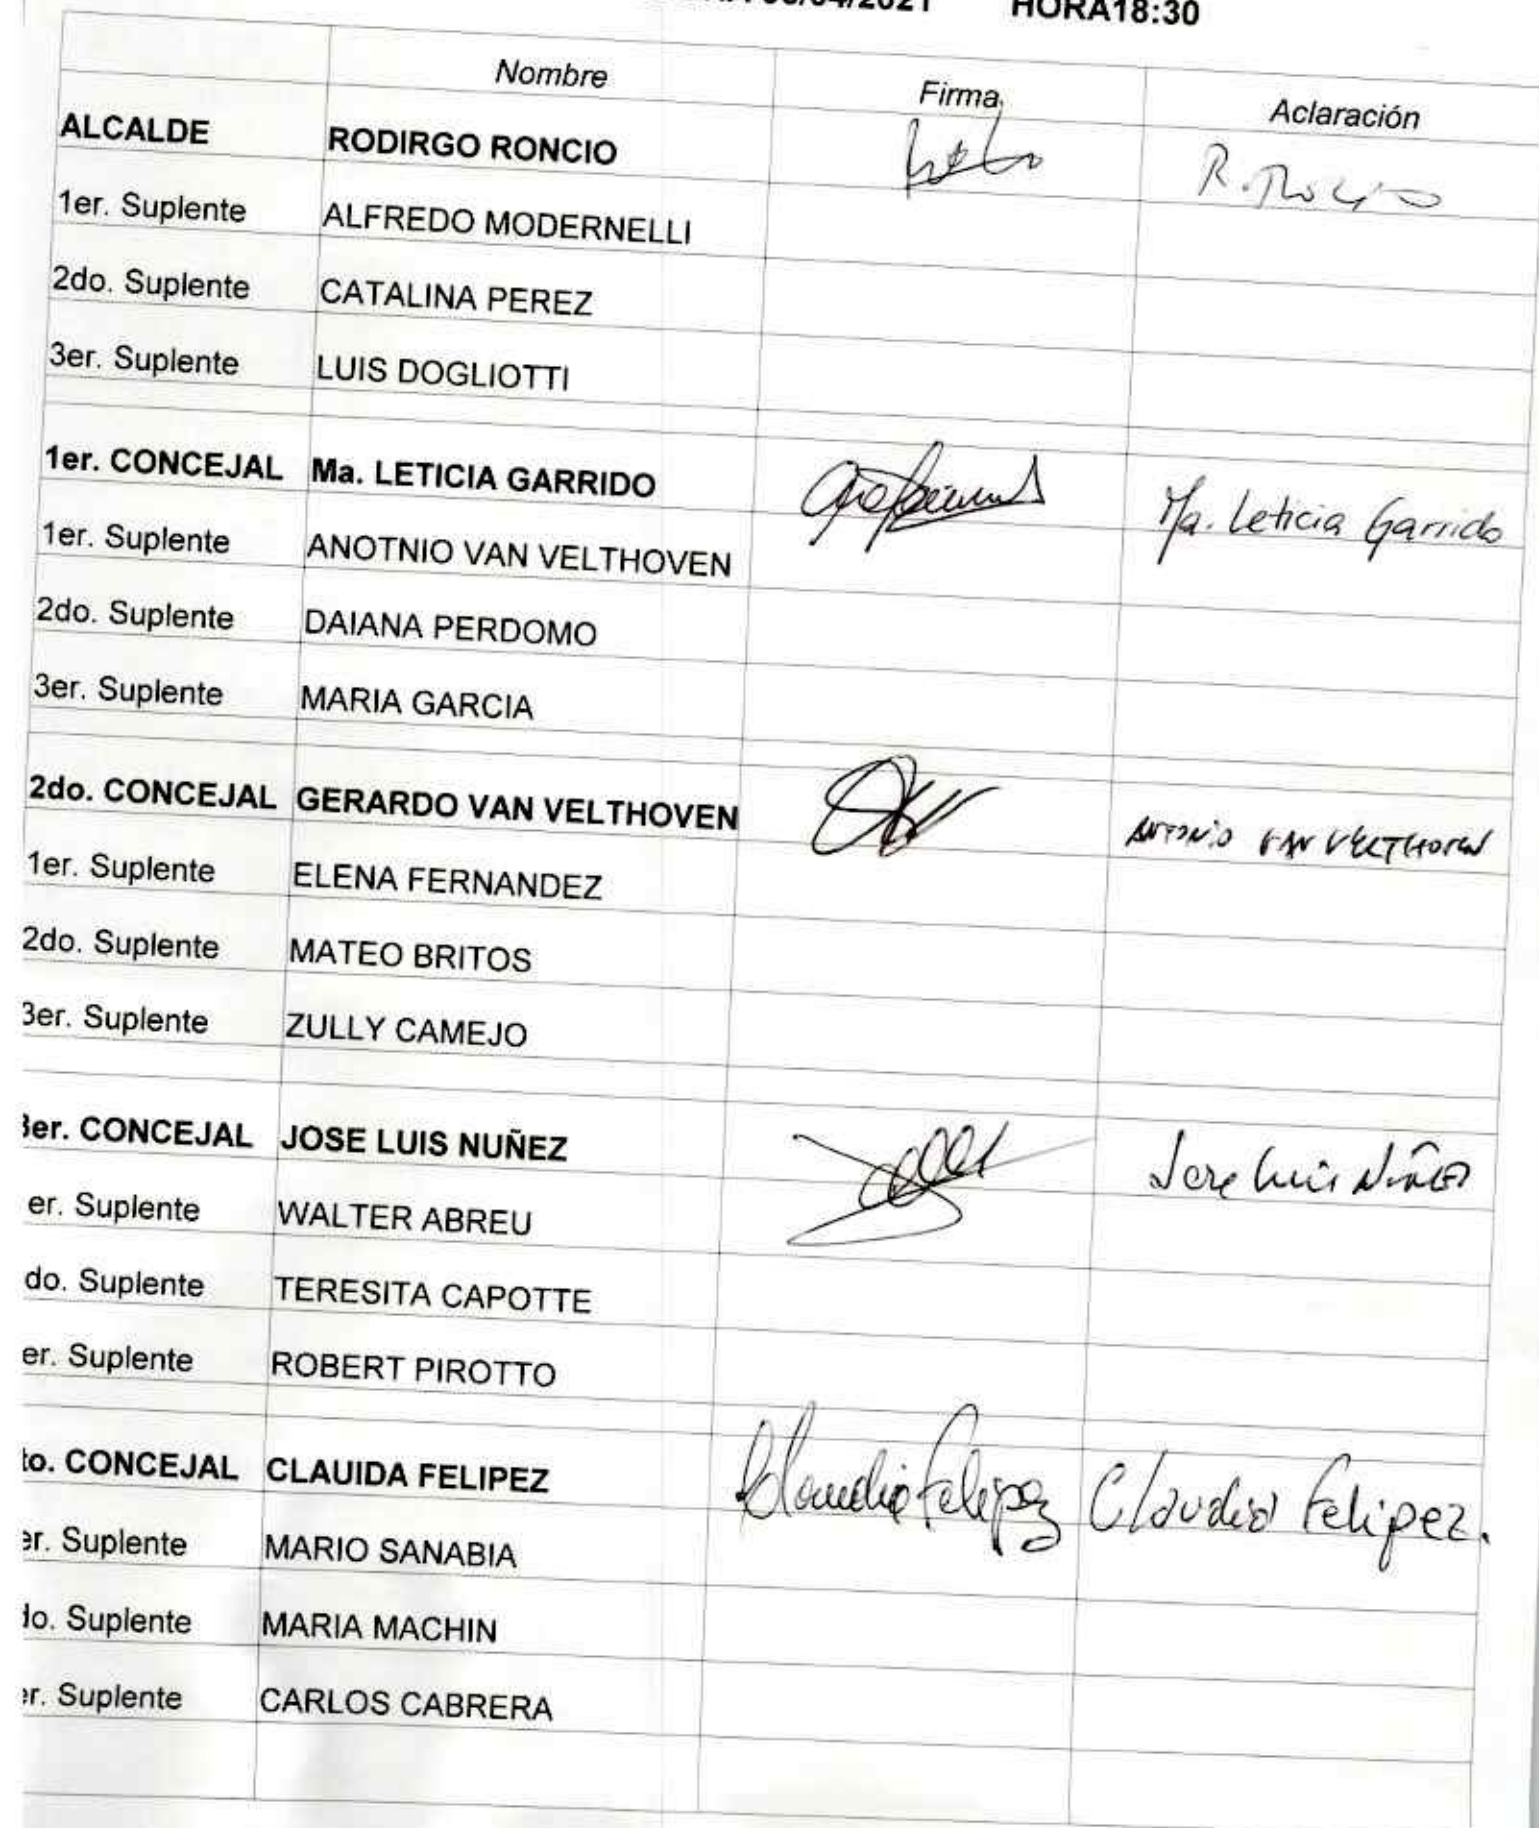 /04/2021 HORA18:30
Nombre Firma Aclaración
ALCALDE RODIRGO RONCIO R. Roncio
1er. Suplente ALFREDO MODERNELLI
2do. Suplente CATALINA PEREZ
3er. Suplente LUIS DOGLIOTTI
1er. CONCEJAL Ma. LETICIA GARRIDO Ma. Leticia Garrido
1er. Suplente ANOTNIO VAN VELTHOVEN
2do. Suplente DAIANA PERDOMO
3er. Suplente MARIA GARCIA
2do. CONCEJAL GERARDO VAN VELTHOVEN ANTONIO VAN VELTHOVEN
1er. Suplente ELENA FERNANDEZ
2do. Suplente MATEO BRITOS
3er. Suplente ZULLY CAMEJO
3er. CONCEJAL JOSE LUIS NUÑEZ Jose Luis Nuñez
er. Suplente WALTER ABREU
do. Suplente TERESITA CAPOTTE
er. Suplente ROBERT PIROTTO
to. CONCEJAL CLAUIDA FELIPEZ Claudia Felipez Claudia Felipez.
er. Suplente MARIO SANABIA
do. Suplente MARIA MACHIN
er. Suplente CARLOS CABRERA